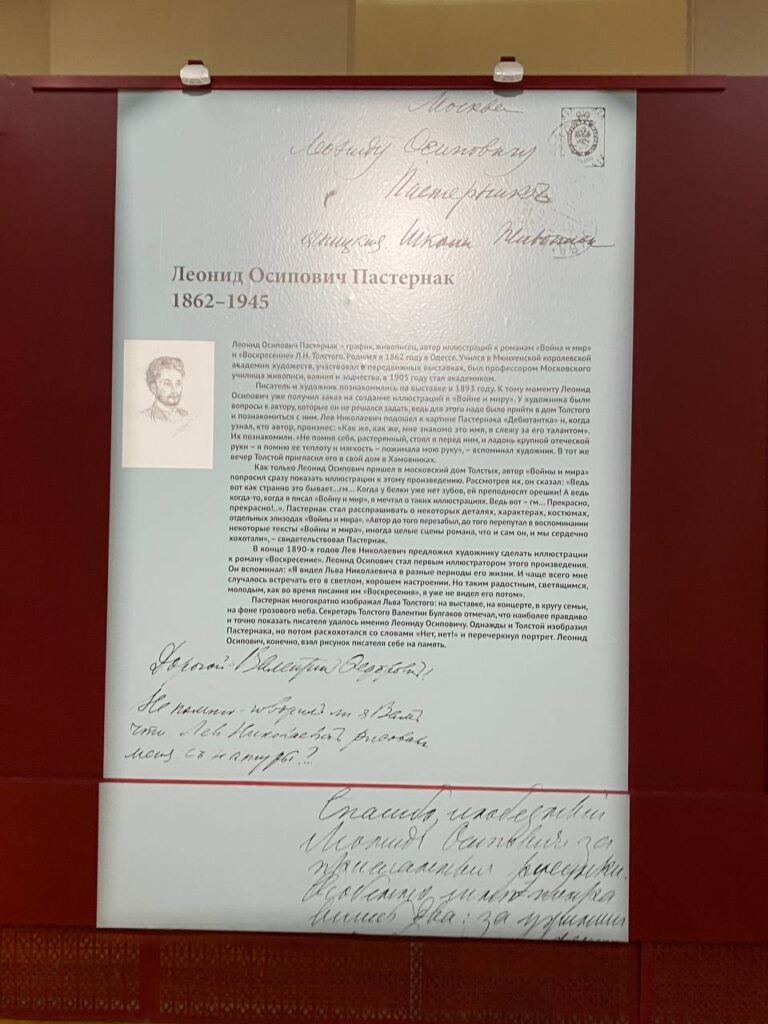 Москва
Леониду Осиповичу
Пастернаку
Школа Живописи
Леонид Осипович Пастернак
1862–1945
Леонид Осипович Пастернак – график, живописец, автор иллюстраций к романам «Война и мир»
и «Воскресение» Л.Н. Толстого. Родился в 1862 году в Одессе. Учился в Мюнхенской королевской
академии художеств, участвовал в передвижных выставках, был профессором Московского
училища живописи, ваяния и зодчества, в 1905 году стал академиком.
Писатель и художник познакомились на выставке в 1893 году. К тому моменту Леонид
Осипович уже получил заказ на создание иллюстраций к «Войне и миру». У художника были
вопросы к автору, которые он не решался задать, ведь для этого надо было прийти в дом Толстого
и познакомиться с ним. Лев Николаевич подошел к картине Пастернака «Дебютантка» и, когда
узнал, кто автор, произнес: «Как же, как же, мне знакомо это имя, я слежу за его талантом».
Их познакомили. «Не помня себя, растерянный, стоял я перед ним, и ладонь крупной отеческой
руки – я помню ее теплоту и мягкость – пожимала мою руку», – вспоминал художник. В тот же
вечер Толстой пригласил его в свой дом в Хамовниках.
Как только Леонид Осипович пришел в московский дом Толстых, автор «Войны и мира»
попросил сразу показать иллюстрации к этому произведению. Рассмотрев их, он сказал: «Ведь
вот как странно это бывает...гм... Когда у белки уже нет зубов, ей преподносят орешки! А ведь
когда-то, когда я писал «Войну и мир», я мечтал о таких иллюстрациях. Ведь вот – гм... Прекрасно,
прекрасно!..». Пастернак стал расспрашивать о некоторых деталях, характерах, костюмах,
отдельных эпизодах «Войны и мира». «Автор до того перезабыл, до того перепутал в воспоминании
некоторые тексты «Войны и мира», иногда целые сцены романа, что и сам он, и мы сердечно
хохотали», – свидетельствовал Пастернак.
В конце 1890-х годов Лев Николаевич предложил художнику сделать иллюстрации
к роману «Воскресение». Леонид Осипович стал первым иллюстратором этого произведения.
Он вспоминал: «Я видел Льва Николаевича в разные периоды его жизни. И чаще всего мне
случалось встречать его в светлом, хорошем настроении. Но таким радостным, светящимся,
молодым, как во время писания им «Воскресения», я уже не видел его потом».
Пастернак многократно изображал Льва Толстого: на выставке, на концерте, в кругу семьи,
на фоне грозового неба. Секретарь Толстого Валентин Булгаков отмечал, что наиболее правдиво
и точно показать писателя удалось именно Леониду Осиповичу. Однажды и Толстой изобразил
Пастернака, но потом расхохотался со словами «Нет, нет!» и перечеркнул портрет. Леонид
Осипович, конечно, взял рисунок писателя себе на память.
Дорогой Валентин Федорович!
Не помню говорил ли я Вамъ
что Лев Николаевичъ рисовалъ
меня съ натуры?
Спасибо, любезный
Леонидъ Осиповичъ за
рисунки.
Особенно
два: за